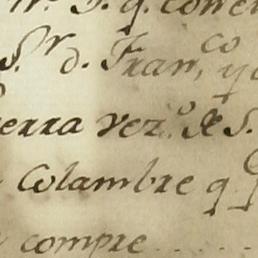 S.r d. Fran.co
erra vez.o de S.
Colambre q
compre